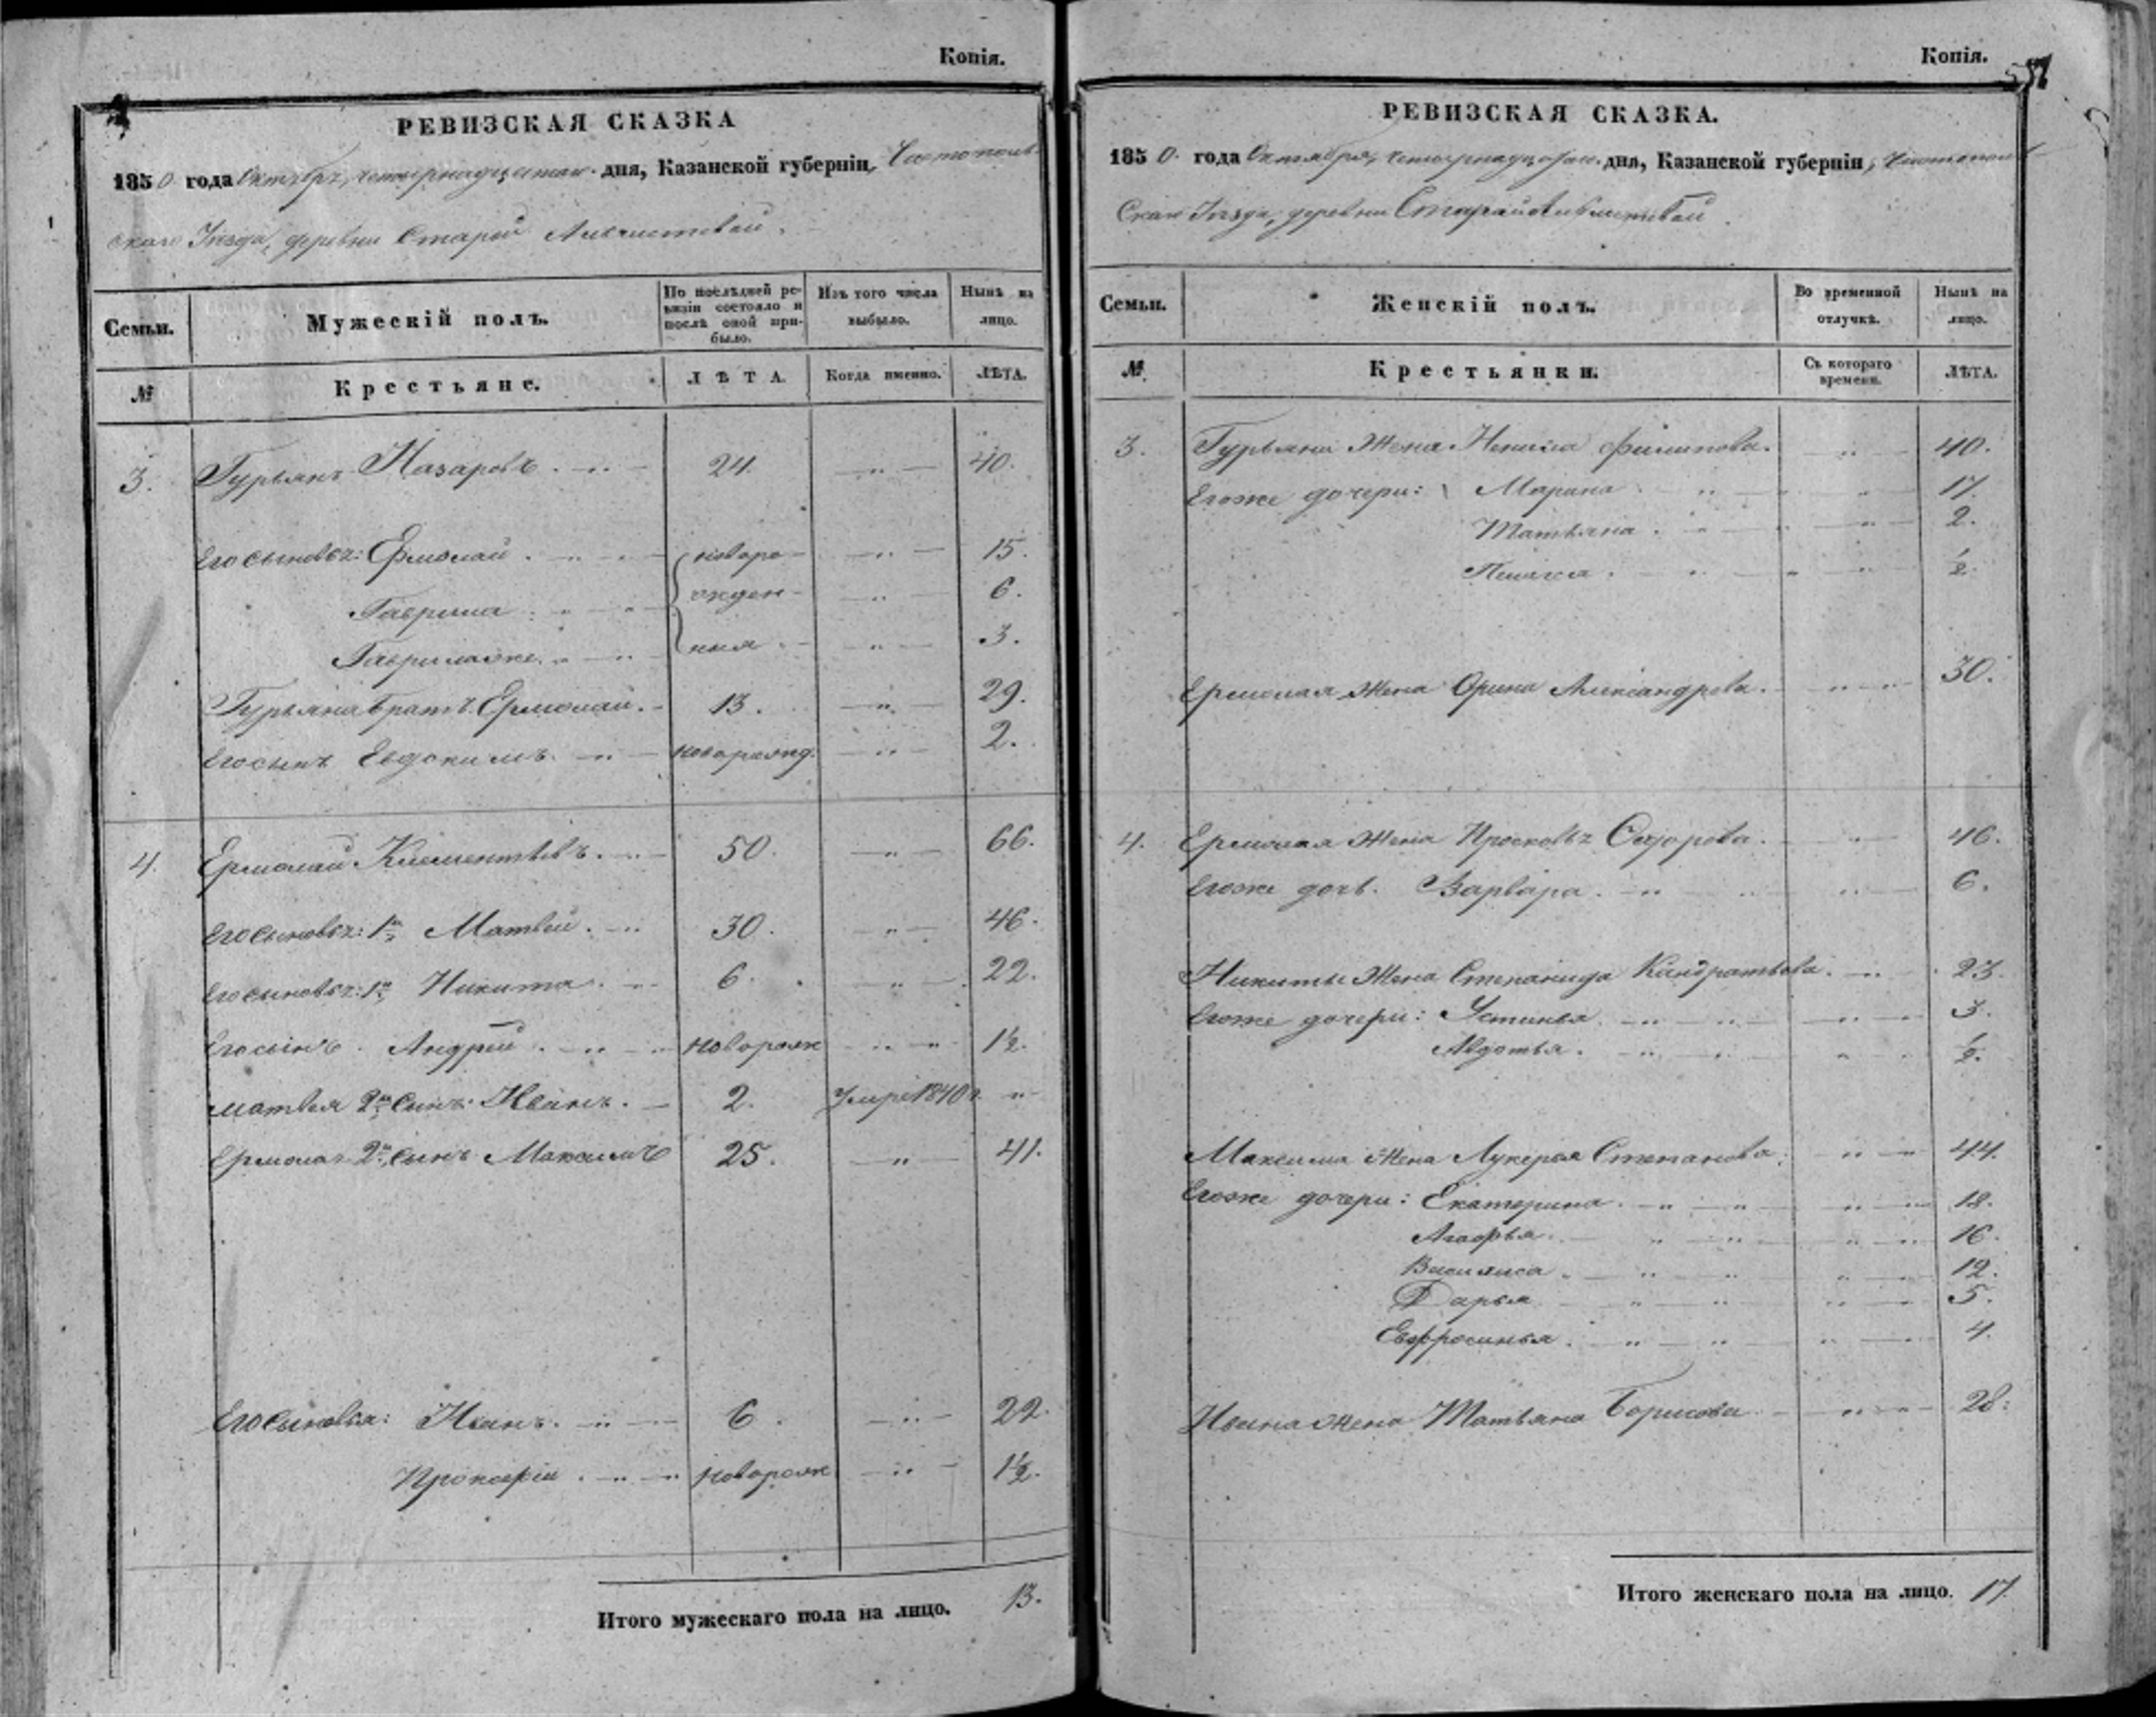 Копія.
РЕВИЗСКАЯ СКАЗКА
1850 года Октября, четырнадцатаго дня, Казанской губерніи, Чистополь-
скаго Уѣзда, деревни Старой
Семьи.
Мужескій полъ.
По послѣдней ре-
визіи состояло и
послѣ оной при-
было.
Изъ того числа
выбыло.
Нынѣ на
лицо.
№
Крестьяне.
ЛѢТА.
Когда именно.
ЛѢТА.
3. Гурьянъ Назаровъ. 24. 40.
Его сыновьх: Ермолай. новоро- 15.
Гаврила. жден- 6.
Гаврила же. ныя 3.
Гурьяна братъ Ермолай. 13. 29.
Его сынъ Евдокимъ. новорожд. 2.
4. Ермолай Клементьевъ. 50. 66.
Его сыновьх: 1й Матвей. 30. 46.
Его сыновьх: 1й Никита. 6. 22.
Его сынъ. Андрей. новорож 1½.
Матвея 2й сынъ Иванъ. 2. Умре 1840 г.
Ермолая 2й сынъ Максимъ 25. 41.
Его сыновья: Иванъ. 6. 22.
Прокофiй. новорож 1½.
Итого мужескаго пола на лицо. 13.
Копія.
557
РЕВИЗСКАЯ СКАЗКА.
1850. года Октября, четырнадцатаго дня, Казанской губерніи, Чистополь-
скаго Уѣзда, деревни Старой
Семьи.
Женскій полъ.
Во временной
отлучкѣ.
Нынѣ на
лицо.
№.
Крестьянки.
Съ котораго
времени.
ЛѢТА.
3. Гурьяна жена Ненила Филипова. 40.
Его же дочери: Марина 17.
Татьяна. 2.
½.
Ермолая жена Орина Александрова. 30.
4. Ермолая жена Просковьх 46.
Его же дочь. Варвара. 6.
Никиты жена Степанида Кандратьева. 23.
Его же дочери: Устинья. 3.
Авдотья. ½.
Максима жена Лукерья Степанова. 44.
Его же дочери: Екатерина. 18.
Агафья. 16.
Василиса. 12.
Дарья 5.
Евфросинья. 4.
Ивана жена Татьяна Борисова 28.
Итого женскаго пола на лицо. 17